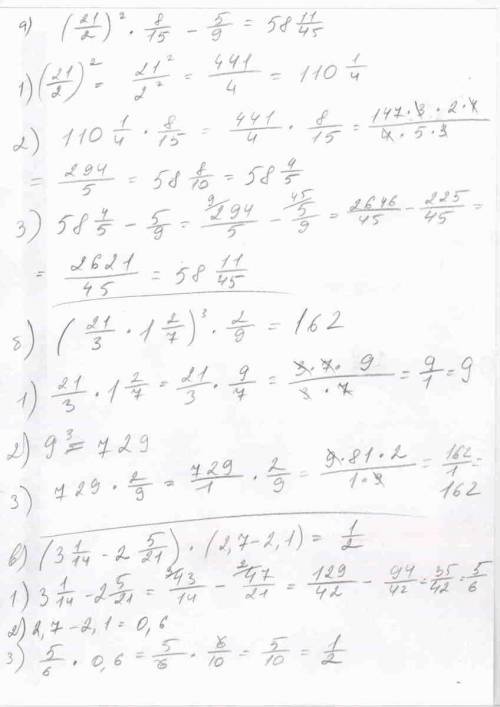 а) (21/2)² · 8/15 − 5/9 = 58 11/45
1) (21/2)² = 21²/2² = 441/4 = 110 1/4
2) 110 1/4 · 8/15 = 441/4 · 8/15 = 147·3·2·4/4·5·3
= 294/5 = 58 8/10 = 58 4/5
3) 58 4/5 − 5/9 = 9 294/5 − 45 5/9 = 2646/45 − 225/45 =
= 2621/45 = 58 11/45
б) (21/3 · 1 2/7)³ · 2/9 = 162
1) 21/3 · 1 2/7 = 21/3 · 9/7 = 3·7·9/3·7 = 9/1 = 9
2) 9³ = 729
3) 729 · 2/9 = 729/1 · 2/9 = 9·81·2/1·9 = 162/1 =
162
в) (3 1/14 − 2 5/21) · (2,7−2,1) = 1/2
1) 3 1/14 − 2 5/21 = 3 43/14 − 2 47/21 = 129/42 − 94/42 = 35/42 = 5/6
2) 2,7−2,1=0,6
3) 5/6 · 0,6 = 5/6 · 6/10 = 5/10 = 1/2